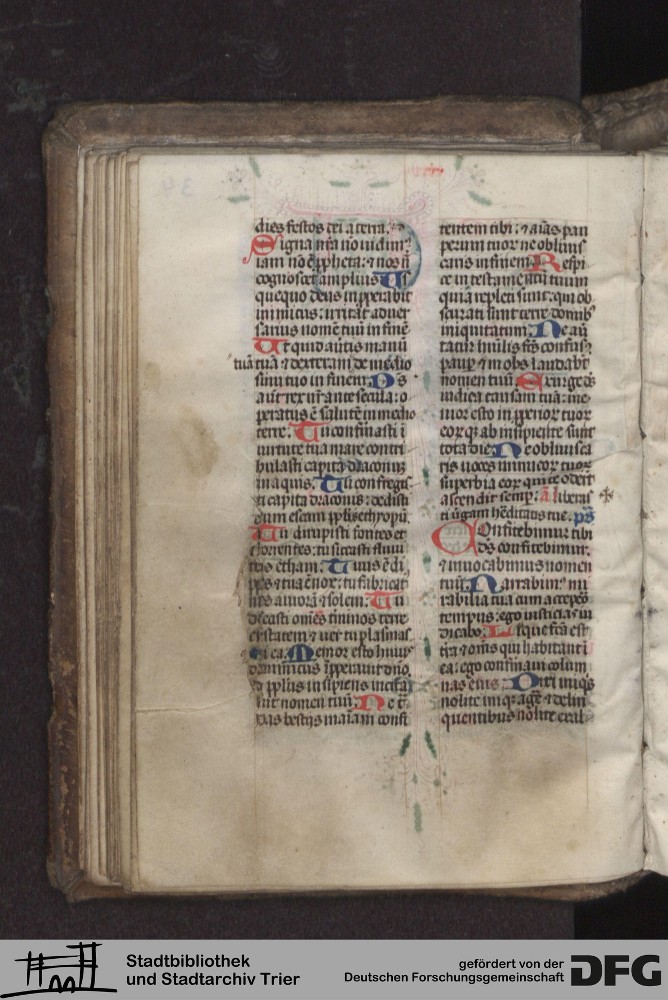 dies festos dei a terra.
Signa nr̄a nō vidim9
iam nō ē ꝓpheta: ⁊ nos n̄
cognoscet amplius Us
quequo deus inꝓperabit
inimicus: irritat aduer
sarius nomē tuū in finē
Ut quid auertis manū
tuā tuā ⁊ dexteram de medio
sinu tuo in finem. Ds
aūt rex nr̄ ante secula: o
peratus ē salutē in medio
terre. Tu confirmasti ī
virtute tua mare contri
bulasti capita draconū
in aquis. Tu confregis
ti capita draconis: dedisti
eum escam pplis ethyopū.
Tu dirupisti fontes et
torrentes: tu siccasti fluui
os etham. Tuus ē di
es ⁊ tua ē nox: tu fabricat9
es aurorā ⁊ solem. Tu
fecisti om̄es t̄minos terre
estatem ⁊ ver tu plasmas
ti ea. Memor esto huius
inimicus īꝓperauit dn̄o
⁊ pplus insipiens incita
uit nomen tuū. Ne t̄
das bestijs aīam confi
tentem tibi: ⁊ aīas pau
perum tuoꝝ ne obliuis
caris in finem Respi
ce in testamentū tuum
quia repleti sunt: qui ob
scurati sunt terre domib9
iniquitatum. Ne au̇
tatur hūilis fc̄s confus9
paup̄ ⁊ inops laudabt̄
nomen tuū. Exurge d̄s
iudica causam tuā: me
mor esto inꝓꝑioꝝ tuoꝝ
eoꝝ q̄ ab insipiente sunt
tota die. Ne obliuisca
ris uoces inimicoꝝ tuoꝝ
superbia eoꝝ qui te oderūt
ascendit semp̄. ā liberas
ti uirgam hēditatis tue. ps̄
Confitebimur tibi
ds̄ confitebimur:
⁊ inuocabimus nomen
tuū. Narrabim9 mi
rabilia tua cum accepero
tempus: ego iusticias iu
dicabo. Lique fc̄a est
tr̄a ⁊ om̄s qui habitant ī
ea: ego confirmaui colum
nas eius. Dixi iniq̄s
nolite iniq̄ agē: ⁊ delin
quentibus nolite exal
Stadtbibliothek
und Stadtarchiv Trier
gefördert von der
Deutschen Forschungsgemeinschaft
DFG